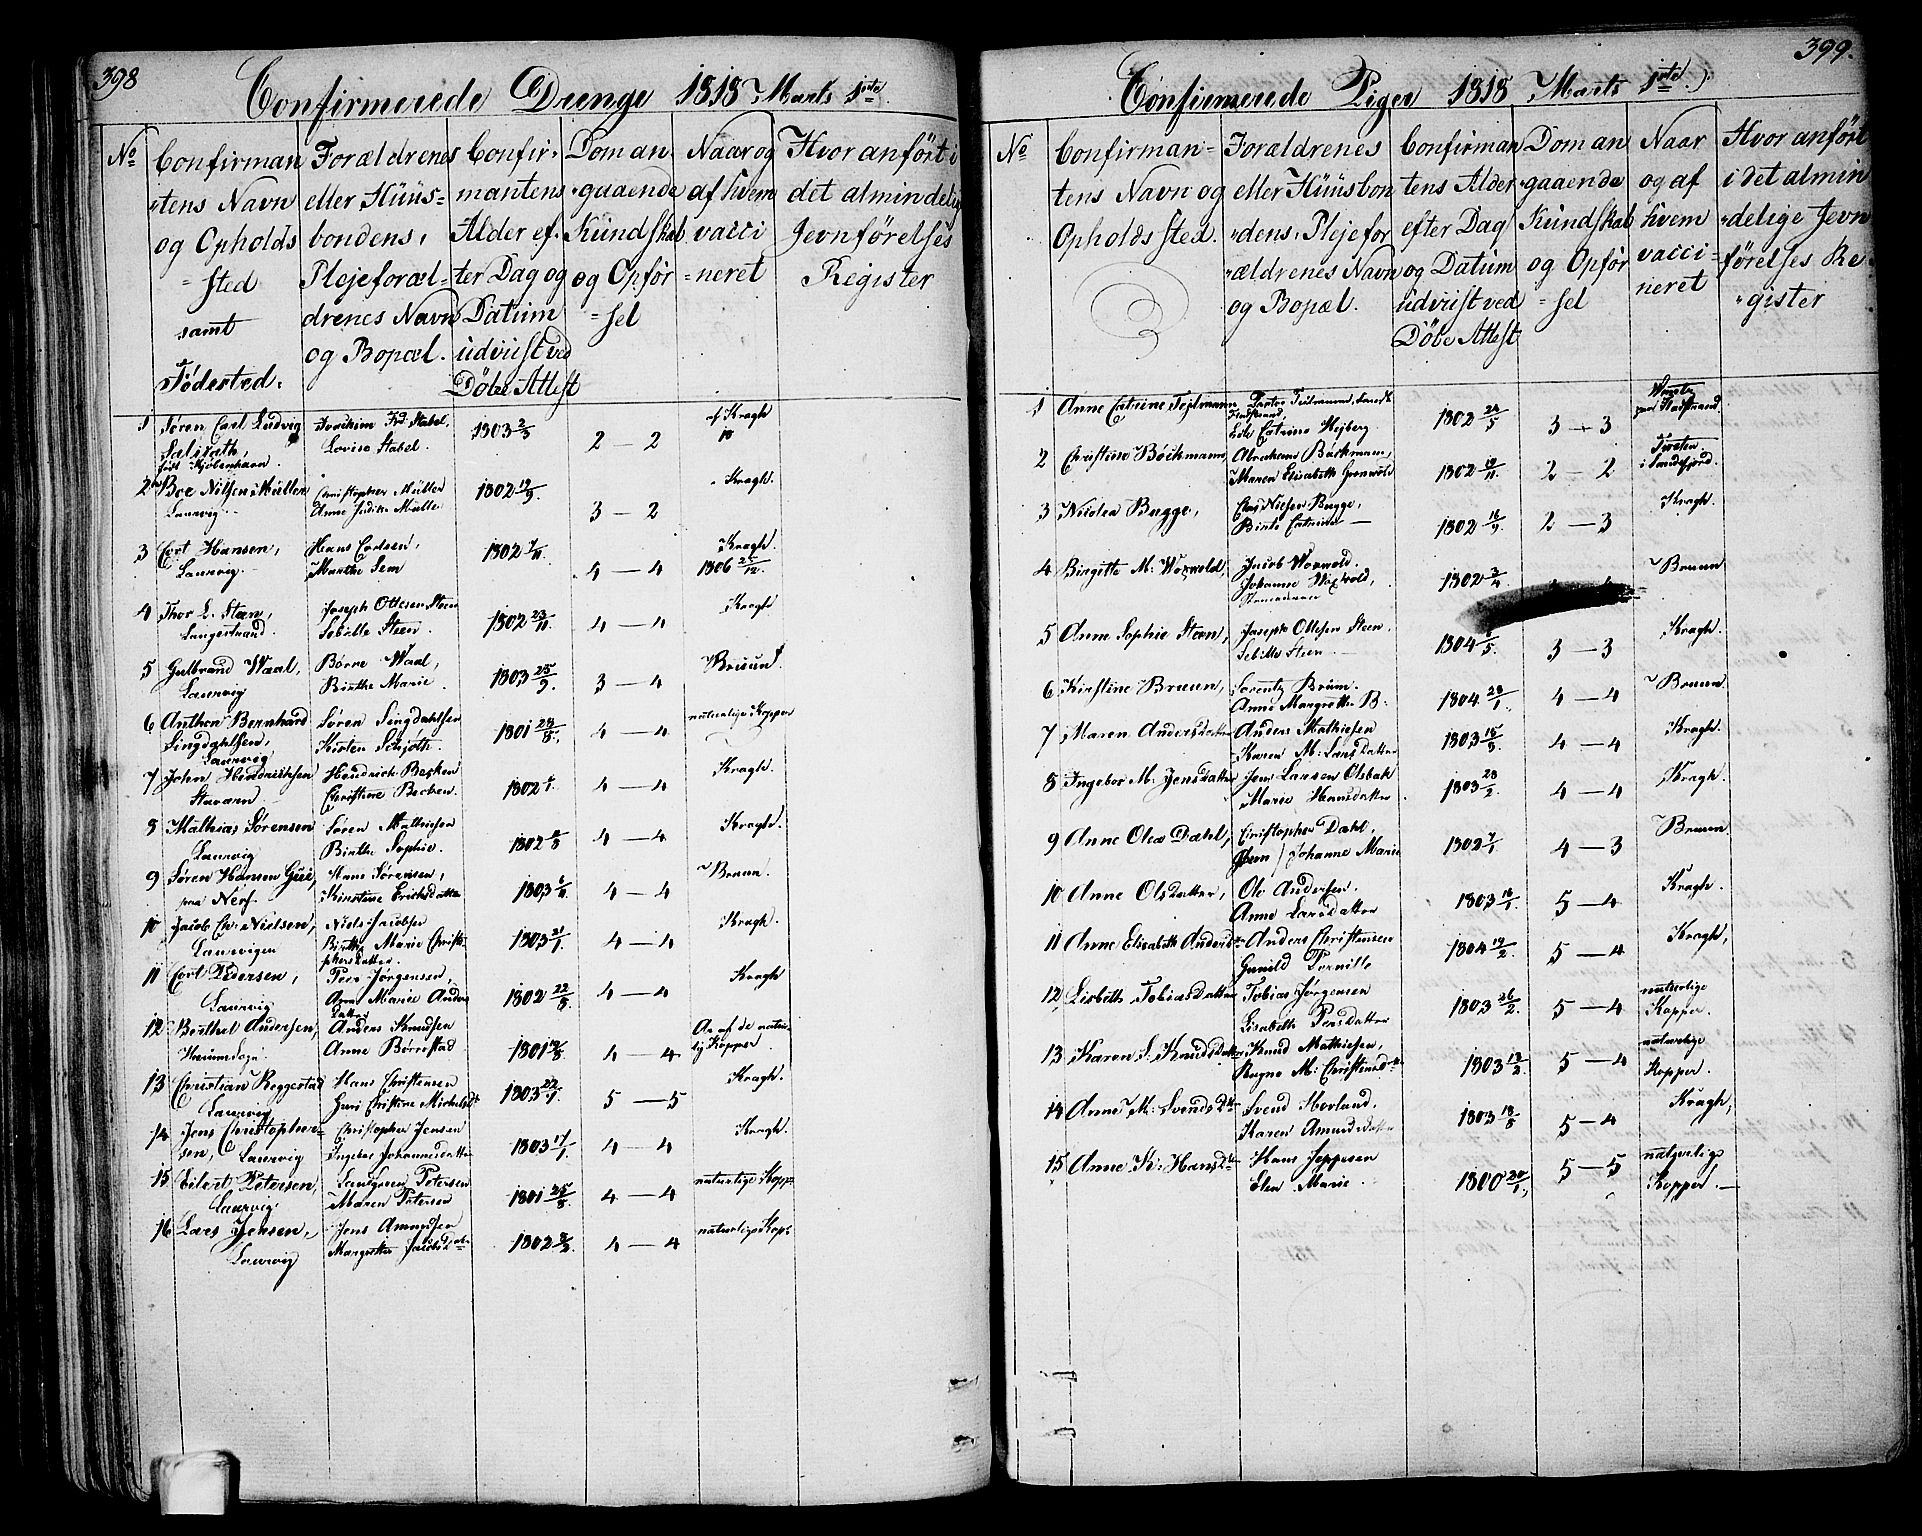 398
Confirmerede Drenge 1818 Marts 1ste.
No
Confirman
tens Navn
og Opholds
sted
samt
Födested.
Forældrenes
eller Hüüs-
bondens,
Plejeforæl-
drenes Navn
og Bopæl.
Confir-
mantens
Alder ef-
ter Dag og
Datum
udviist ved
Döbe Attest
Dom an
gaaende
Kündskab
og Opför
sel
Naar og
af hvem
vacci
neret
Hvor anfört i
det almindelig
Jevnförelses
Register
1 Sören Carl Ludvig
Joachim Frd. Stabel,
Lovise Stabel
1803 2/3
2 — 2
af Kragh
föd: Kjöbenhavn.
2 Boe Nilsen Müller
Laurvig
Christopher Müller
1802 19/9.
3 — 2
Kragh.
3 Cort Hansen,
Laurvig.
Hans Cortsen,
Marthe Sem
1802 7/11.
4 — 4
Kragh.
1806 25/12.
4 Thor L. Steen,
Langestrand.
Joseph Ottesen Steen
Sebille Steen.
1802 23/11
4 — 4
Kragh
5 Gulbrand Waal,
Laurvig
Börre Waal,
Birthe Marie
1803 25/9
3 — 4
6 Anthon Bernhard
Lingdahlsen,
Laurvig
Sören Lingdahlsen
Kirsten Schjöth.
1801 28/8.
4 — 4
naturlige Kopper
7 John Hendrichsen
Staværn
Hendrich Becken
Christine Becken.
1802
4 — 4
Kragh.
8 Mathias Sörensen
Laurvig
Sören Mathiesen
Birthe Sophie.
1802
4 — 4
Kragh.
9 Sören Hansen
Hans Sörensen,
Kirstine Erichsdatter
1803
4 — 4
Bruun.
10 Jacob Chr. Nielsen,
Laurvigen
Niels Jacobsen
Birthe Marie Christo-
phersdatter.
1803 21/1.
4 — 4
Kragh.
11 Cort Pedersen,
Laurvig
Peer Jörgensen,
Anne Marie Anders
datter
1802 22/8
4 — 4
Kragh
12 Berthel Andersen,
Anders Knudsen
Anne Börrestad
1801
4 — 4
Kopper
13 Christian Roggestad
Laurvig
Hans Christensen
1803
5 — 5
Kragh.
14 Jens Christopher-
sen, Laurvig
Christopher Jensen
Ingebor Johannesdatter
1803 17/1
4 — 4
Kragh.
15 Eilert Petersen,
Laurvig
Petersen
Maren Petersen
1801 25/8
4 — 4
naturlige Kopp.
16 Lars Jensen,
Laurvig
Jens Amundsen
Margrethe Jacobsd.
1802
4 — 4
naturlige Kopp.
399.
Confirmerede Piger 1818 Marts 1ste.
No
Confirman-
tens Navn og
Opholdssted.
Forældrenes
eller Hüüsbon
dens, Plejefor
ældrenes Navn
og Bopæl.
Confirman
tens Alder
efter Dag
og Datum
udviist ved
Döbe Attest
Dom an
gaaende
Kündskab
og Opför
sel
Naar
og af
hvem
vacci
neret
Hvor anfört
i det almin
delige Jevn
förelses Re
gister
1 Anne Catrine Tejlmann
1802 24/5
3 — 3
2 Christine Böckmann,
Abraham Böckmann,
Maren Elisabeth Grönvold
1802 19/11.
2 — 2
i Sandefjord.
3 Nicolea Bugge,
Nielsen Bugge,
Birte Catrine —
1802 16/9.
2 — 3
Kragh.
4 Birgitte M. Woxvold,
Jacob Woxvold.
Johanne Woxvold,
1802 3/4
Bruun
5 Anne Sophie Steen,
Joseph Ottesen Steen,
Sebille Steen
1804
3 — 3
Kragh.
6 Kirstine Bruun,
Lorentz Bruun.
Anne Margrethe B.
1804 28/1.
4 — 4
Bruun.
7 Maren Andersdatter
Anders Mathiesen
Karen M. Larsdatter
1803
4 — 4
Kragh.
8 Ingebor M. Jensdatter
Jens Larsen Olsbak
Marie Hansdatter
1803 28/2.
4 — 4
Kragh.
9 Anne Olea Dahl,
Christopher Dahl,
Johanne Marie
1802 7/1
4 — 3
Bruun
10 Anne Olsdatter,
Ole Andersen.
Anne Larsdatter
1803 16/1.
5 — 4
Kragh.
11 Anne Elisabeth Andersdr
Anders Christensen
Gunild Pernille
1804 19/2.
5 — 4
Kragh,
12 Lisbeth Tobiasdatter
Tobias Jörgensen
Lisabeth Persdatter
1803 26/2.
5 — 4
naturlige
Kopper.
13 Karen S. Knudsdatter
Knud Mathiesen,
Ragne M. Christensdtr
1803 13/2
5 — 4
naturlige
Kopper.
14 Anne M. Svends Dtr
Svend Hovland.
Karen Amundsdatter
1803 18/8
5 — 4
Kragh,
15 Anne K. Hansdtr
Hans Jeppesen
Elen Marie.
1800 20/1.
5 — 5
naturlige
Kopper.